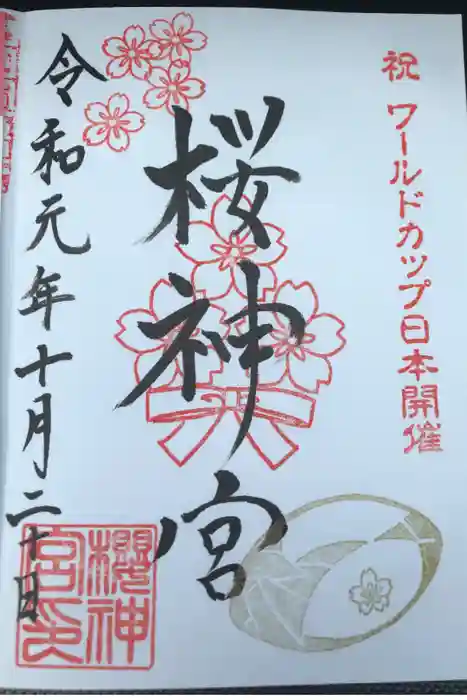 祝 ワールドカップ日本開催
桜神宮
令和元年十月二十日
櫻神
宮印